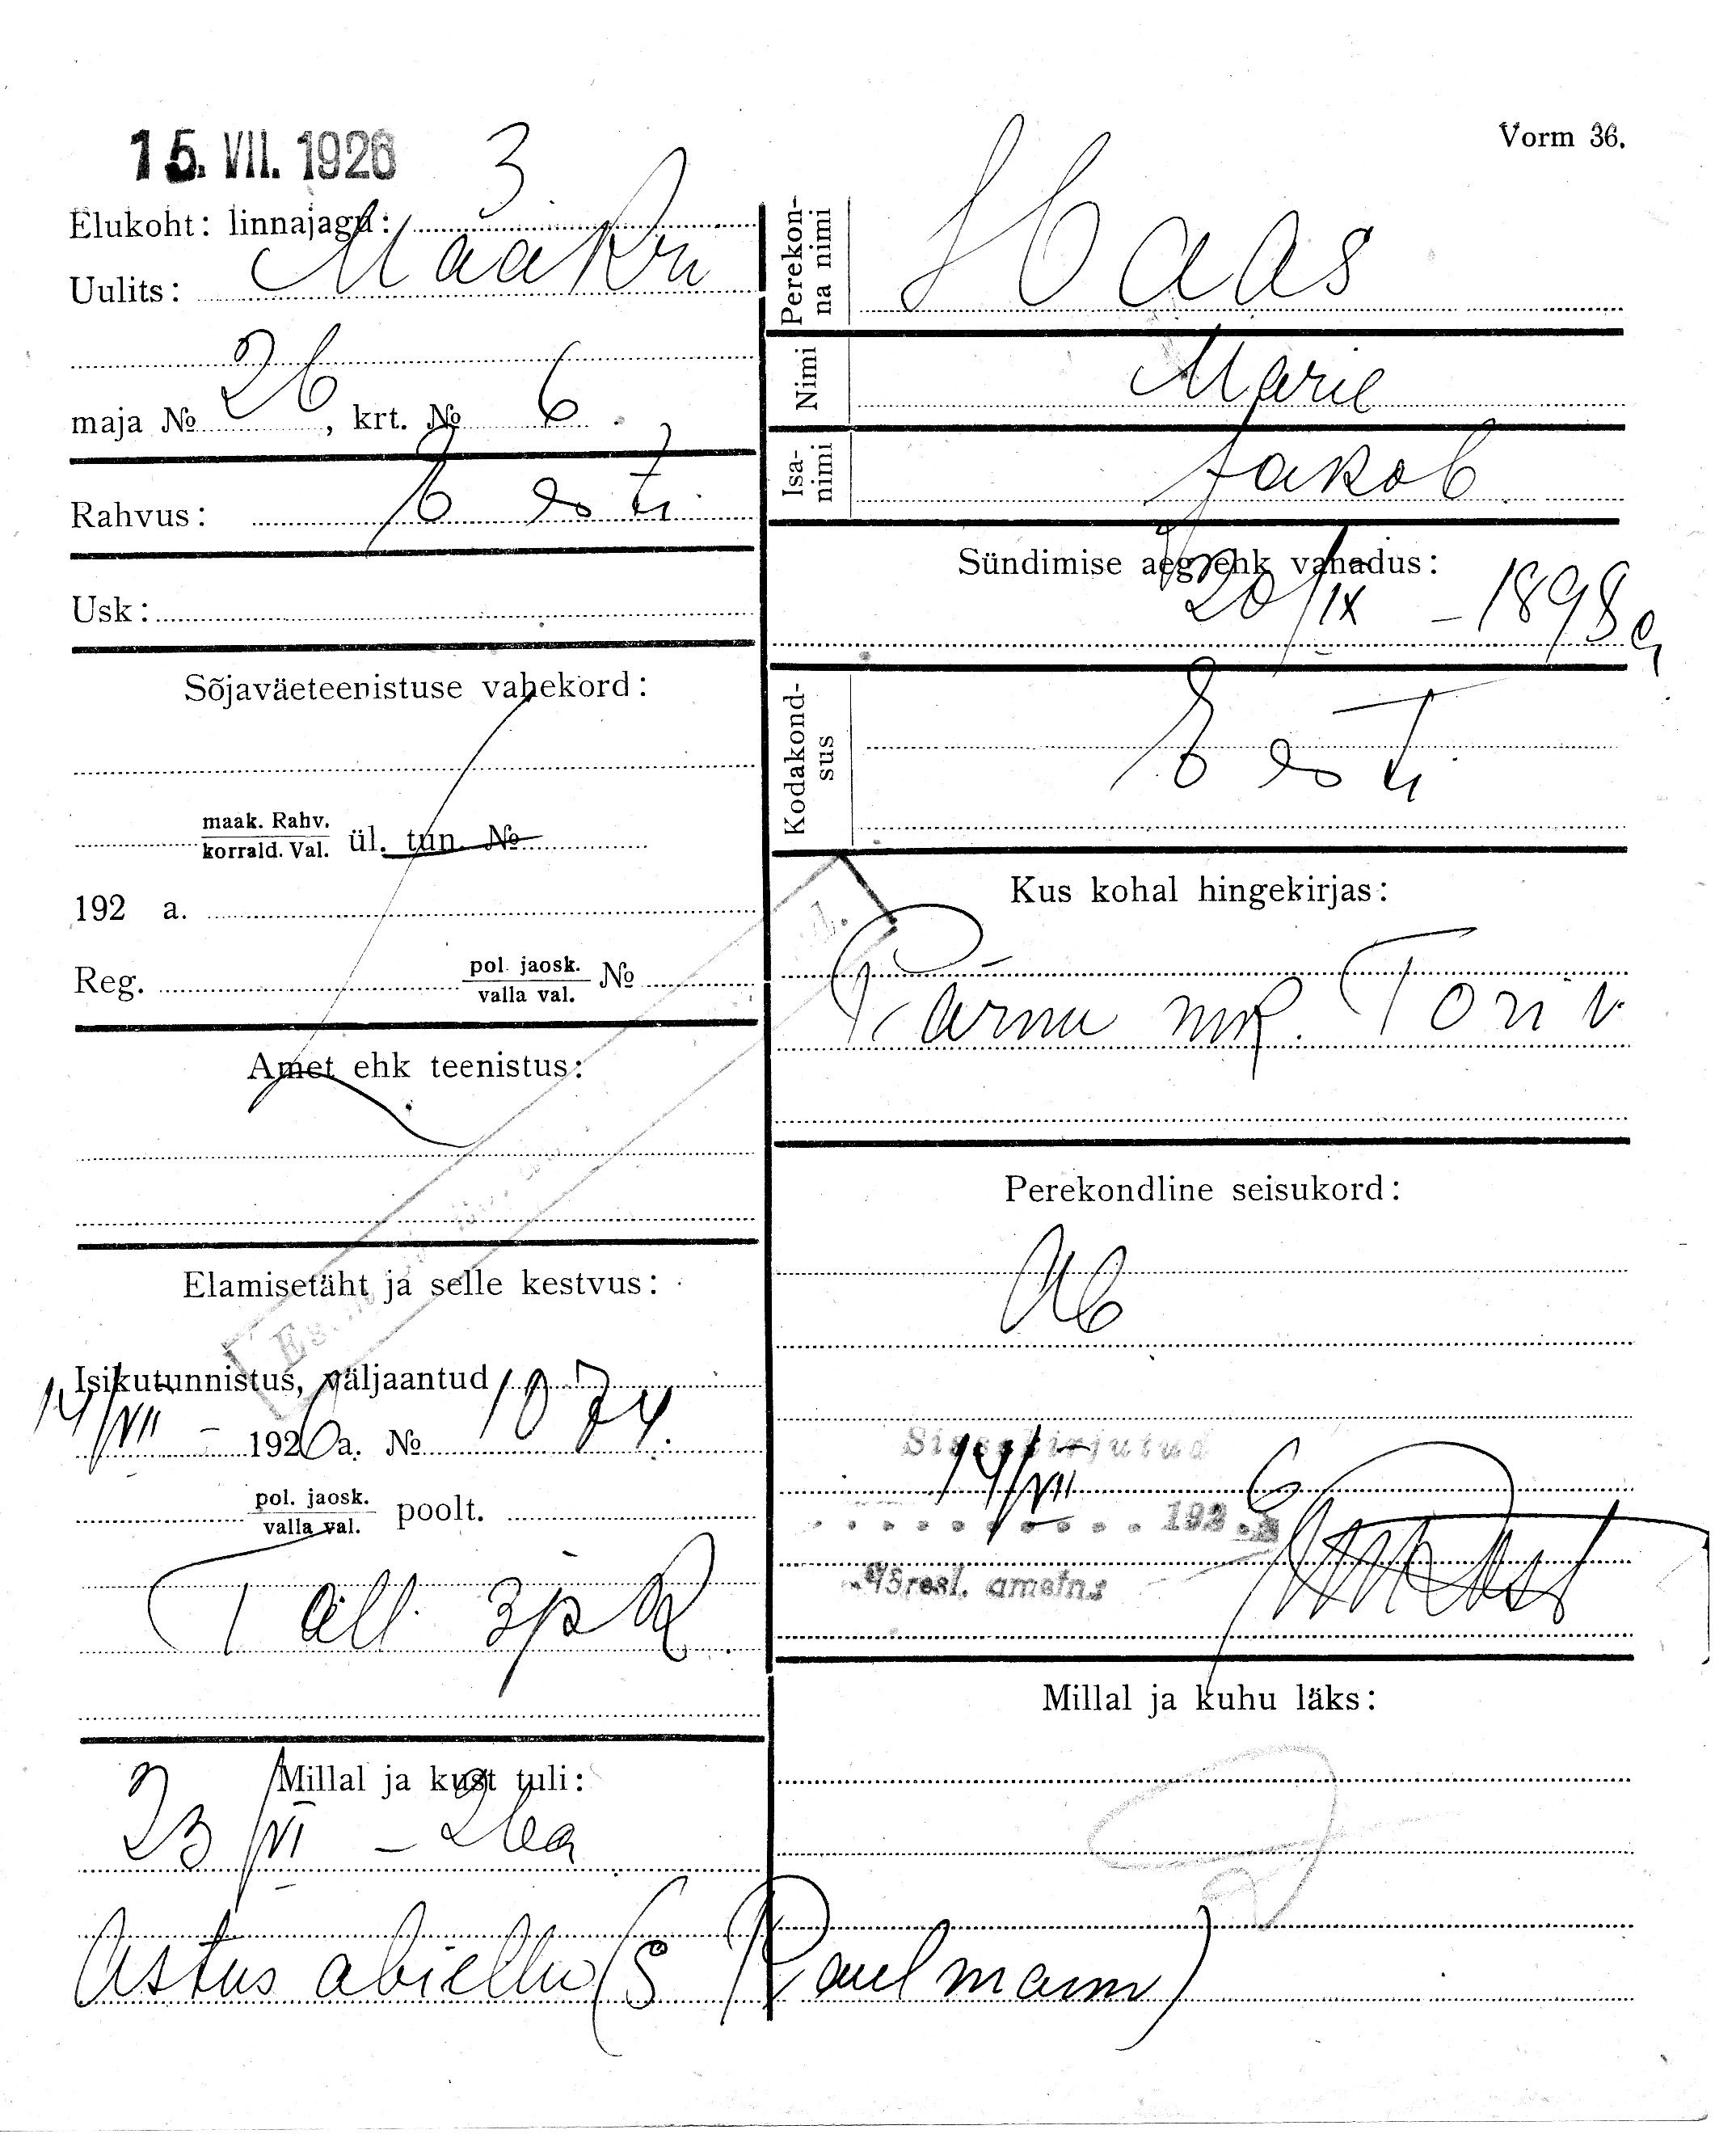 15. VII. 1926
Vorm 36.
Elukoht: linnajagu: 3
Uulits: Maakri
maja № 26, krt. № 6.
Rahvus: Esti
Usk:
Sõjaväeteenistuse vahekord:
maak. Rahv.
korrald. Val. ül. tun. №
192 a.
Reg. pol. jaosk. №
valla val.
Amet ehk teenistus:
Elamisetäht ja selle kestvus:
Isikutunnistus, väljaantud
14/VII - 1926 a. № 1074.
pol. jaosk. poolt.
valla val.
Tall. 3 jsk.
Millal ja kust tuli:
23/VI - 26a
Astus abiellu (s Paulmann)
Perekon-
na nimi Haas
Nimi Marie
Isa-
nimi Jakob
Sündimise aeg ehk vanadus:
20/IX - 1898 a
Kodakond-
sus Esti
Kus kohal hingekirjas:
Pärnu mk. Tori v.
Perekondline seisukord:
Ab
Sissekirjutud
14/VII 192 6
Millal ja kuhu läks: